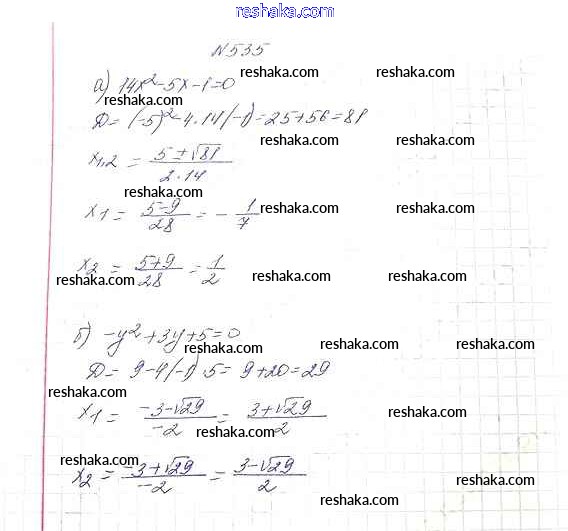 reshaka.com
N535
reshaka.com reshaka.com
а) 14x²-5x-1=0
reshaka.com
D= (-5)²-4·14(-1)=25+56=81
reshaka.com reshaka.com
x1,2 = (5±√81)/(2·14)
reshaka.com
x1 = (5-9)/28 = - 1/7
reshaka.com reshaka.com
x2 = (5+9)/28 = 1/2
reshaka.com reshaka.com reshaka.com
б) -y²+3y+5=0
reshaka.com reshaka.com reshaka.com
D= 9-4(-1) 5= 9+20=29
reshaka.com
x1 = (-3-√29)/-2 = (3+√29)/2
reshaka.com reshaka.com
reshaka.com
x2 = (-3+√29)/-2 = (3-√29)/2
reshaka.com
reshaka.com